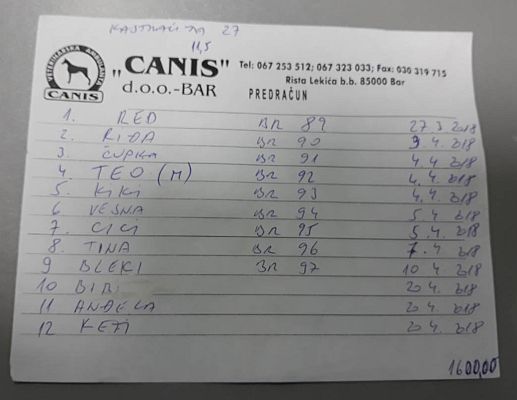 27
11,5
VETERINARSKA AMBULANTA
CANIS
„CANIS"
d.o.o.-BAR
Tel: 067 253 512; 067 323 033; Fax: 030 319 715
Rista Lekića b.b. 85000 Bar
PREDRAČUN
1. RED BR 89 27 3 2018
2. RIĐA BR 90 3. 4. 2018
3 ČUPKA BR 91 4. 4 2018
4. TEO (M) BR 92 4. 4. 2018
5. KIKI BR 93 4. 4. 2018
6 VESNA BR 94 5. 4 2018
7. CICI BR 95 5. 4. 2018
8. TINA BR 96 7. 4 2018
9 BLEKI BR 97 10 4. 2018
10 BIBI 20 4. 2018
11 ANĐELA 20 4. 2018
12 KETI 20 4. 2018
1600,00